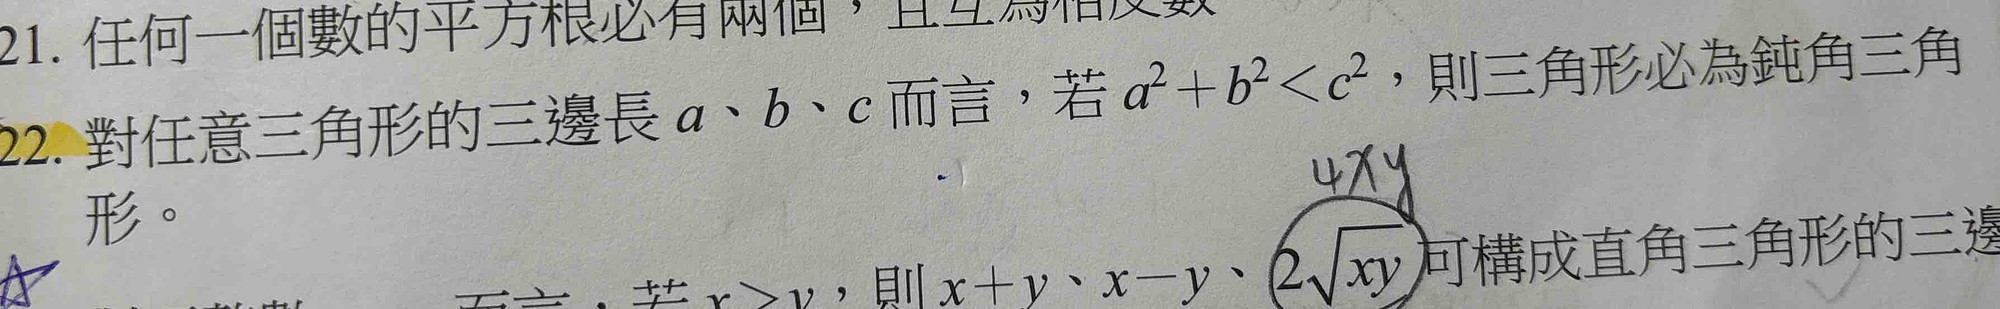 21. 任何一個數的平方根必有兩個，且互為相反數
22. 對任意三角形的三邊長 a、b、c 而言，若 a²+b²<c²，則三角形必為鈍角三角
形。
4xy
而言，若 x>y，則 x+y、x−y、2√xy 可構成直角三角形的三邊